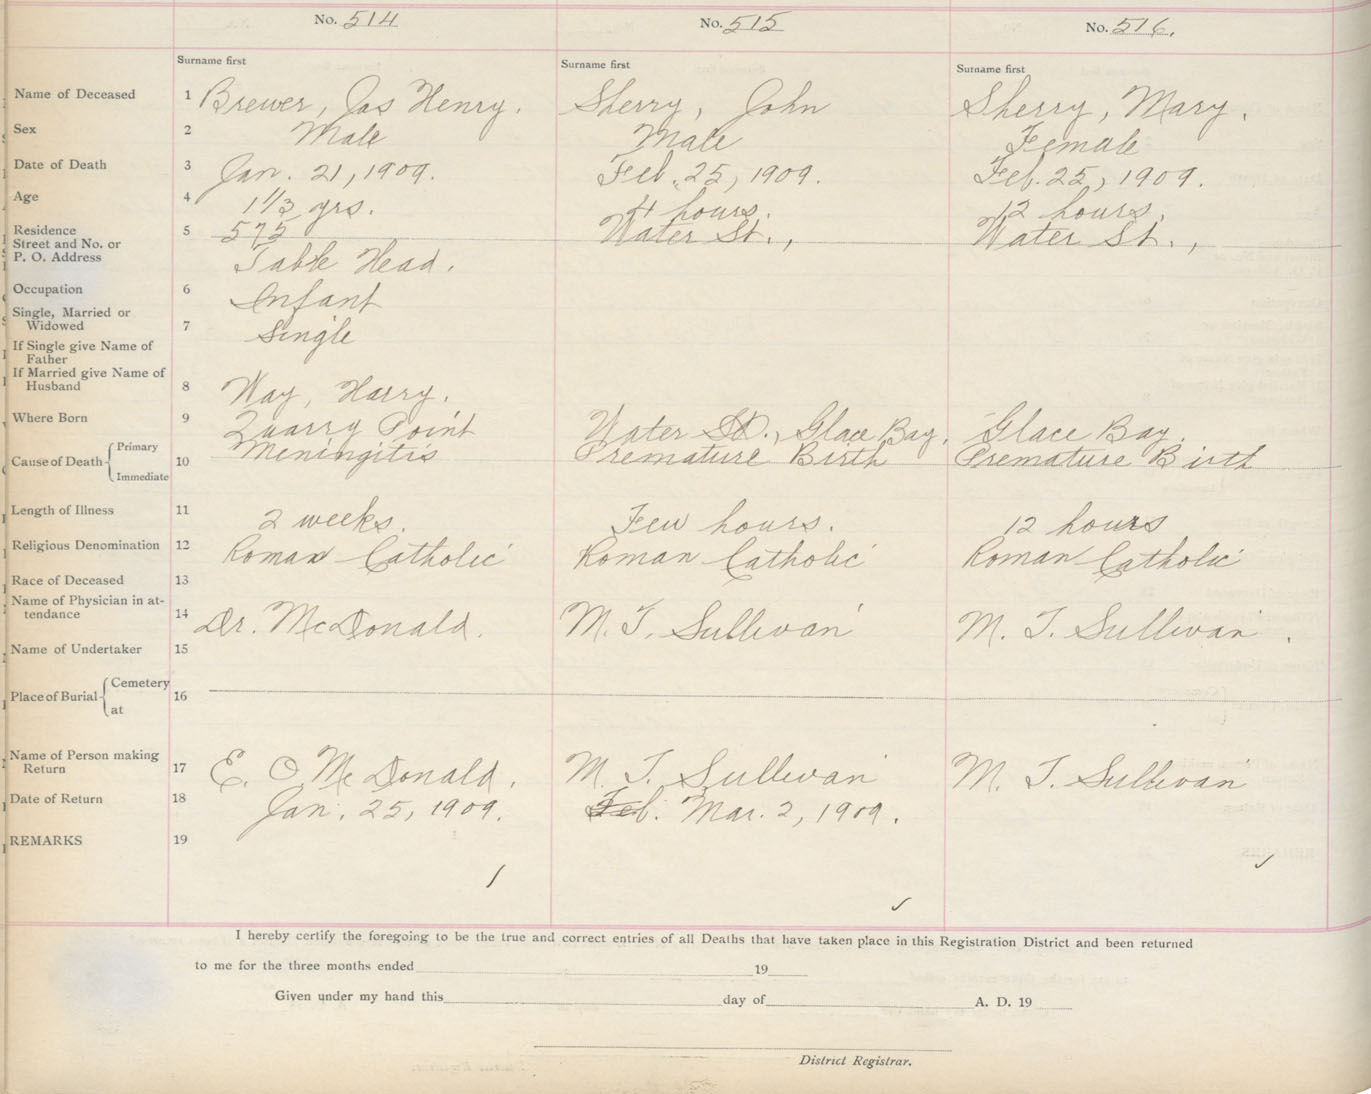 No. 514 No. 515 No. 516.
Surname first Surname first Surname first
Name of Deceased 1 Brewer, Jas Henry. Sherry, John Sherry, Mary.
Sex 2 Male Male Female
Date of Death 3 Jan. 21, 1909. Feb. 25, 1909. Feb. 25, 1909.
Age 4 1 1/3 yrs. 4 hours. 12 hours.
Residence 5 575 Water St., Water St.,
Street and No. or
P. O. Address Table Head.
Occupation 6 Infant
Single, Married or
Widowed 7 Single
If Single give Name of
Father
If Married give Name of
Husband 8 Way, Harry.
Where Born 9 Quarry Point Water St., Glace Bay. Glace Bay.
Cause of Death Primary 10 Meningitis Premature Birth Premature Birth
Immediate
Length of Illness 11 2 weeks. Few hours. 12 hours
Religious Denomination 12 Roman Catholic Roman Catholic Roman Catholic
Race of Deceased 13
Name of Physician in at-
tendance 14 Dr. McDonald. M. T. Sullivan M. T. Sullivan.
Name of Undertaker 15
Place of Burial Cemetery 16
at
Name of Person making
Return 17 E. O McDonald. M. T. Sullivan M. T. Sullivan
Date of Return 18 Jan. 25, 1909. Feb. Mar. 2, 1909.
REMARKS 19
I hereby certify the foregoing to be the true and correct entries of all Deaths that have taken place in this Registration District and been returned
to me for the three months ended 19
Given under my hand this day of A. D. 19
District Registrar.